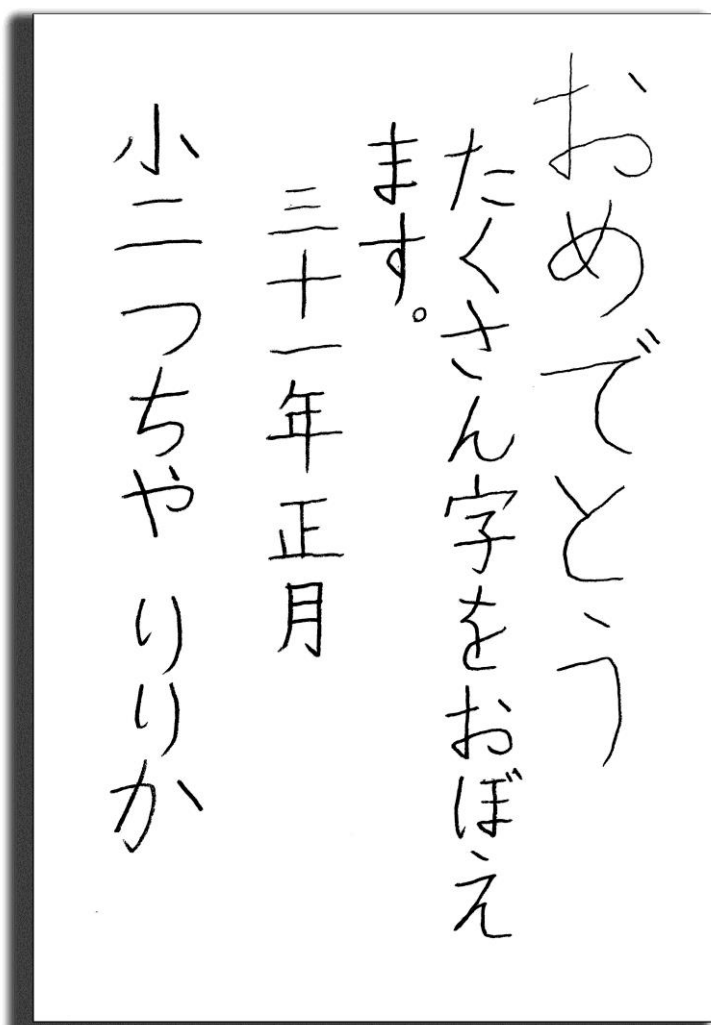 おめでとう
たくさん字をおぼえ
ます。
三十一年正月
小二つちや りりか